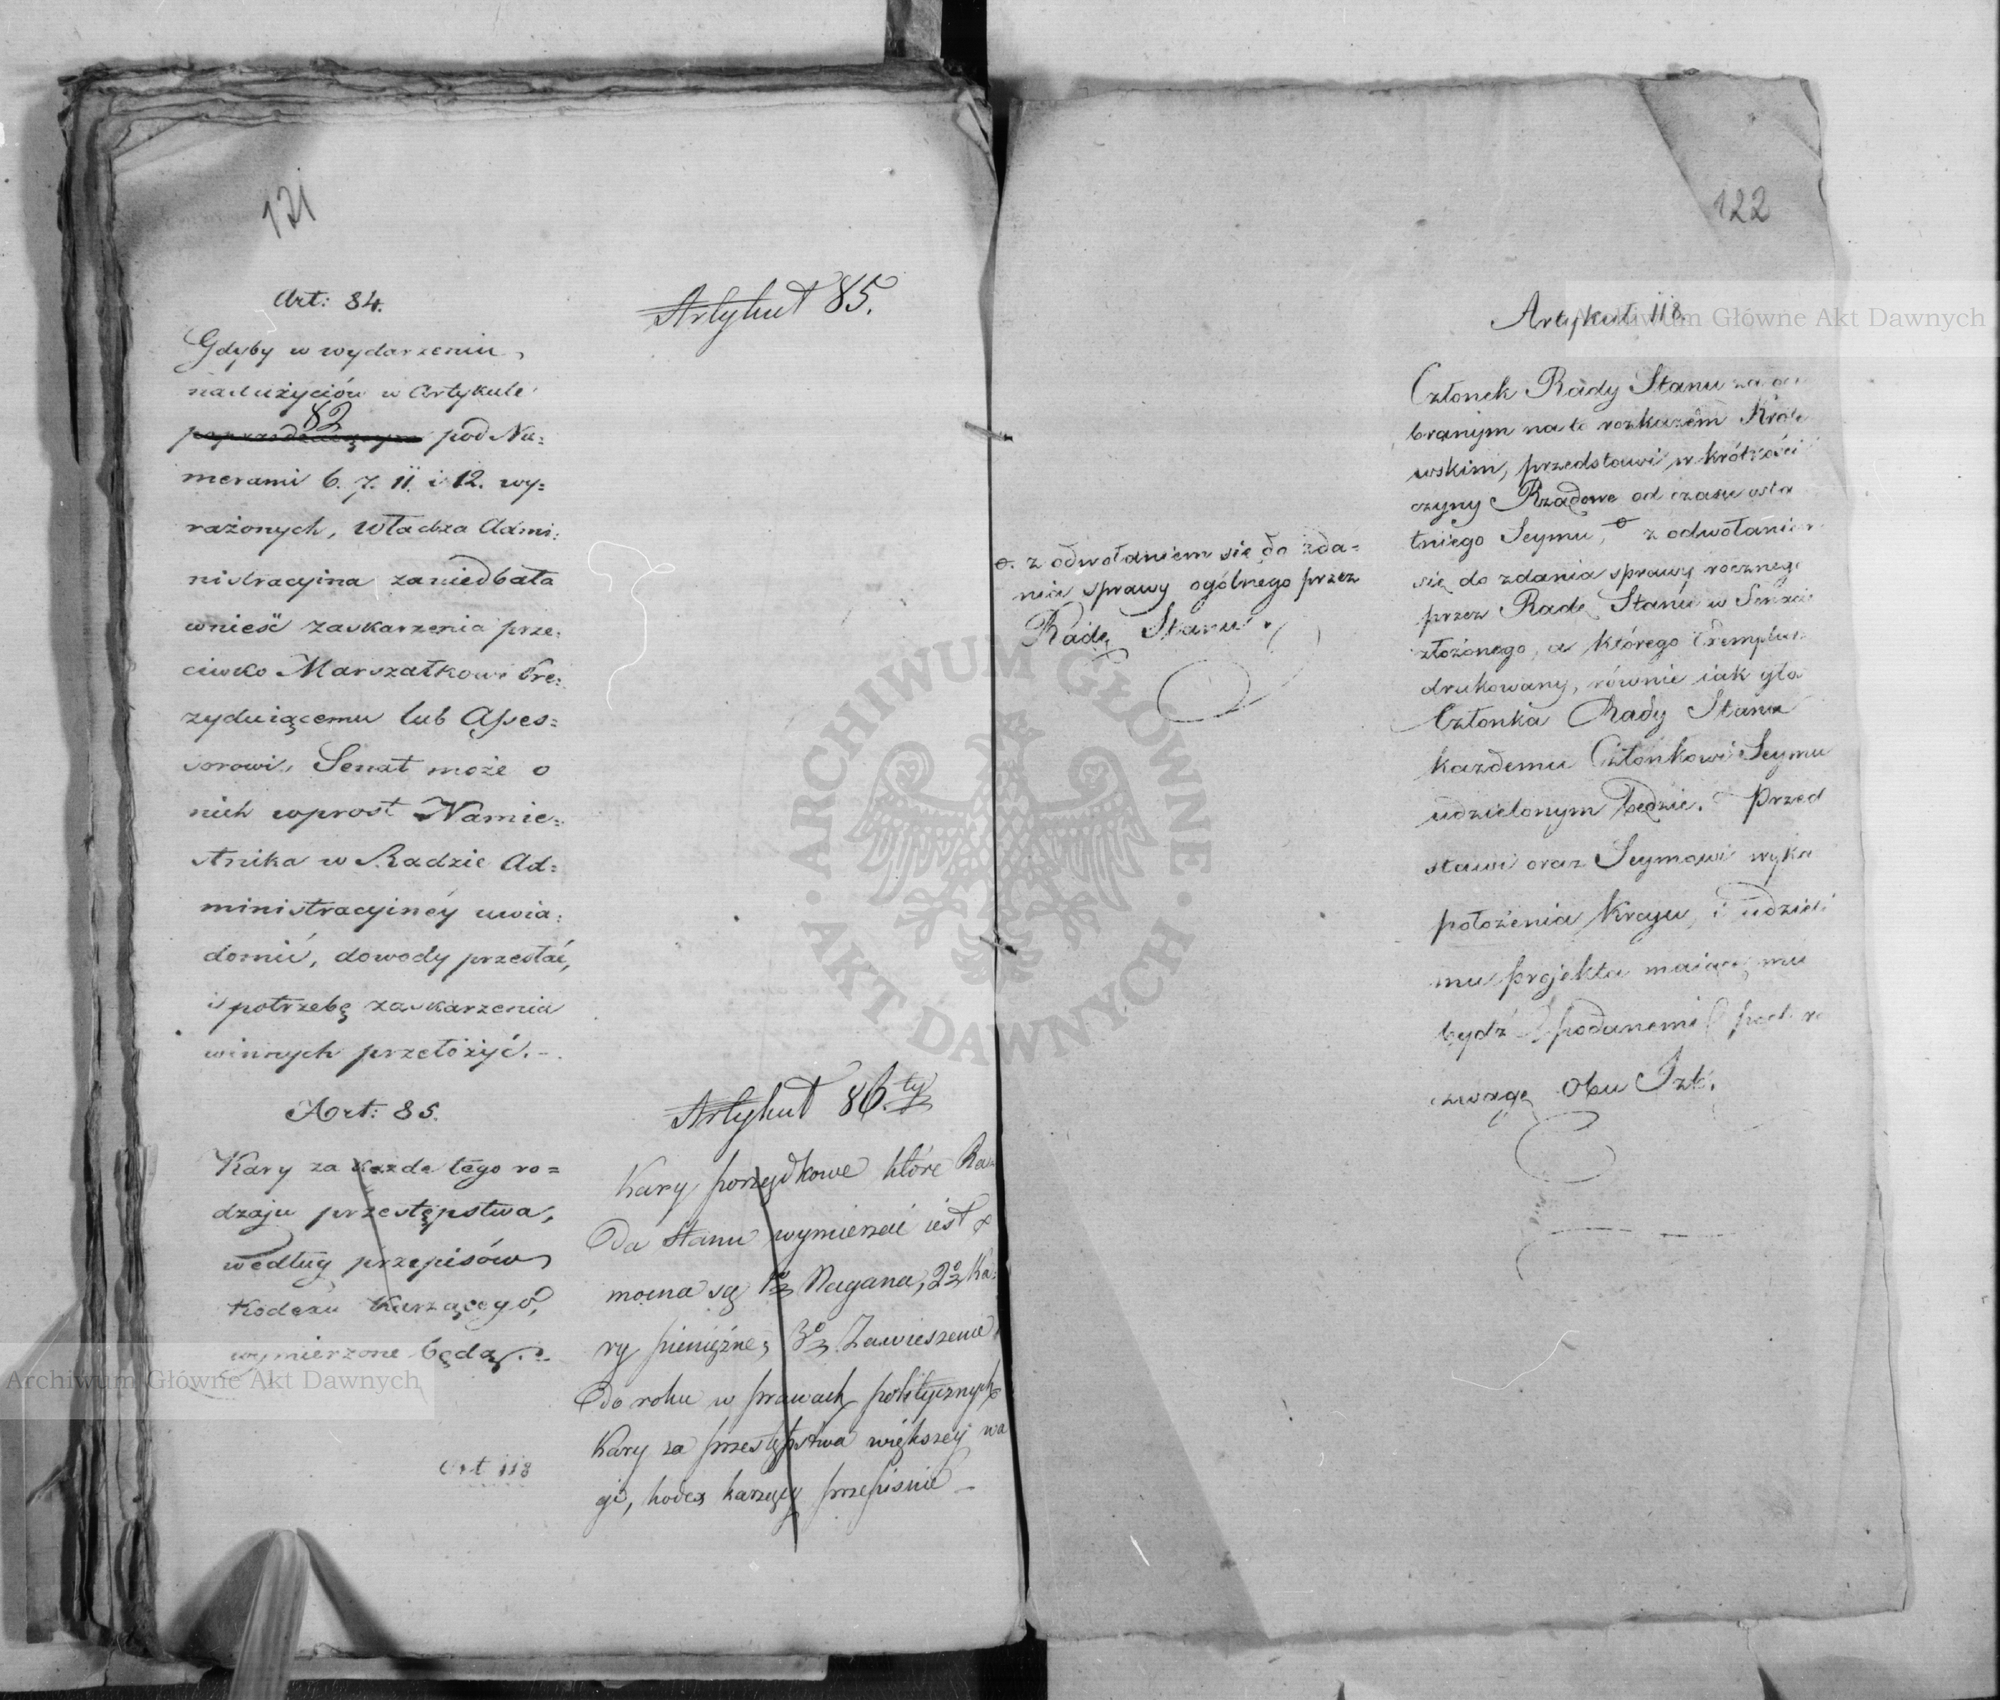 121
Art: 84.
Gdyby w wydarzeniu
nadużyciów w Artykule
82
poprzedzaiącym pod Nu=
merami 6. 7. 11. i 12. wy=
rażonych, Władza Admi:
nistracyina zaniedbała
wnieść zaskarzenia prze:
ciwko Marszałkowi Pre:
zyduiącemu lub Asses=
sorowi, Senat może o
nich wprost Namie=
stnika w Radzie Ad=
ministracyinéy uwia:
domić, dowody przesłać,
i potrzebę zaskarzenia
winnych przełożyć.-
Art: 85.
Kary za każde tego ro=
dzaju przestępstwa,
według przepisów
Kodexu Karzącego,
wymierzone będą.
Art 118
Artykuł 85.
Artykuł 86.ty
Kary porządkowe które Ra=
da Stanu wymierzać iest
mocna są 1o Nagana, 2o Ka=
ry pieniężne, 3o Zawieszenie
do roku w prawach politycznych
Kary za przestępstwa większey wa
gi, kodex karzący przepisuie –
122
z odwołaniem się do zda=
nia sprawy ogólnego przez
Radę Stanu.
Artykuł 118.
Członek Rady Stanu
branym na to rozkazem Króle
wskim, przedstawi w krótkości
czyny Rządowe od czasu osta
tniego Seymu, z odwołaniem
się do zdania sprawy rocznego
przez Radę Stanu w Senacie
złożonego, a którego Exemplarz
drukowany, równie iak gło
Członka Rady Stanu
każdemu Członkowi Seymu
udzielonym będzie. Przed
stawi oraz Seymowi wyka
położenia Kraju, i udzieli
mu projekta maiące mu
bydź podanemi pod ro
zwagę Obu Izb.
ARCHIWUM GŁÓWNE AKT DAWNYCH
Archiwum Główne Akt Dawnych
Archiwum Główne Akt Dawnych